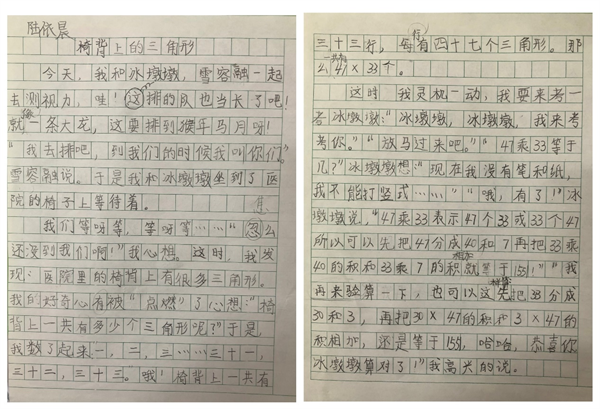 陆依晨
椅背上的三角形
今天，我和冰墩墩，雪容融一起
去测视力，哇！这排的队也当长了吧！
就像一条大龙，这要排到猴年马月呀！
“我去排吧，到我们的时候我叫你们。”
雪容融说。于是我和冰墩墩坐到了医
院的椅子上等待着。
我们等呀等，等呀等……“怎么
还没到我们啊！”我心想。这时，我发
现：医院里的椅背上有很多三角形。
我的好奇心有被“点燃”了心想：“椅
背上一共有多少个三角形呢？”于是
我数了起来一，二，三……三十一，
三十二，三十三。“哦！椅背上一共有
三十三行，每行有四十七个三角形。那
么一共有47×33个。
这时，我灵机一动，我要来考一
考冰墩墩：“冰墩墩，冰墩墩，我来考
考你。”“放马过来吧。”“47乘33等于
几？”冰墩墩想：“现在我没有笔和纸，
我不能打竖式……”“哦，有了！”冰
墩墩说，“47乘33表示47个33或33个47
所以可以先把47分成40和7再把33乘
40的积和33乘7的积相加就等于1551！”“我
再来验算一下，也可以这样算先把33分成
30和3，再把30×47的积和3×47的
积相加，还是等于1551，哈哈，恭喜你
冰墩墩算对了！”我高兴的说。